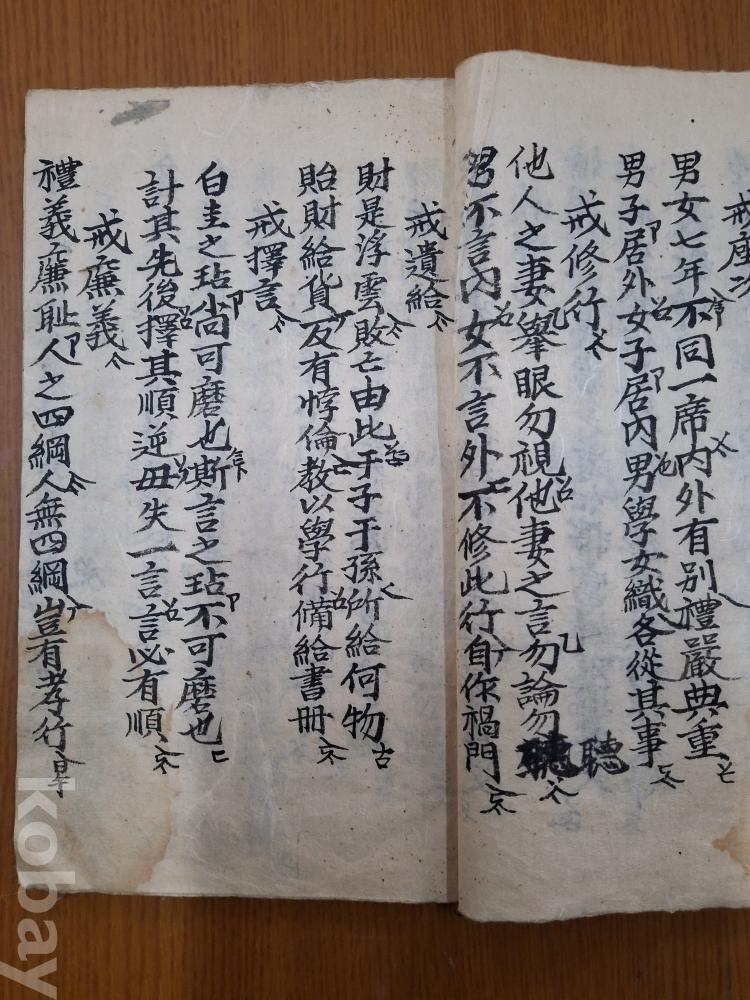 戒座次
男女七年不同一席內外有別禮嚴典重
男子居外女子居內男學女織各從其事
戒修行
他人之妻擧眼勿視他妻之言勿論勿聽聽
男不言內女不言外不修此行自作禍門
戒遺給
財是浮雲敗亡由此于子于孫所給何物
貽財給貨反有悖倫教以學行備給書冊
戒擇言
白圭之玷尚可磨也斯言之玷不可磨也
計其先後擇其順逆毋失一言言必有順
戒廉義
禮義廉恥人之四綱人無四綱豈有孝行
kobay